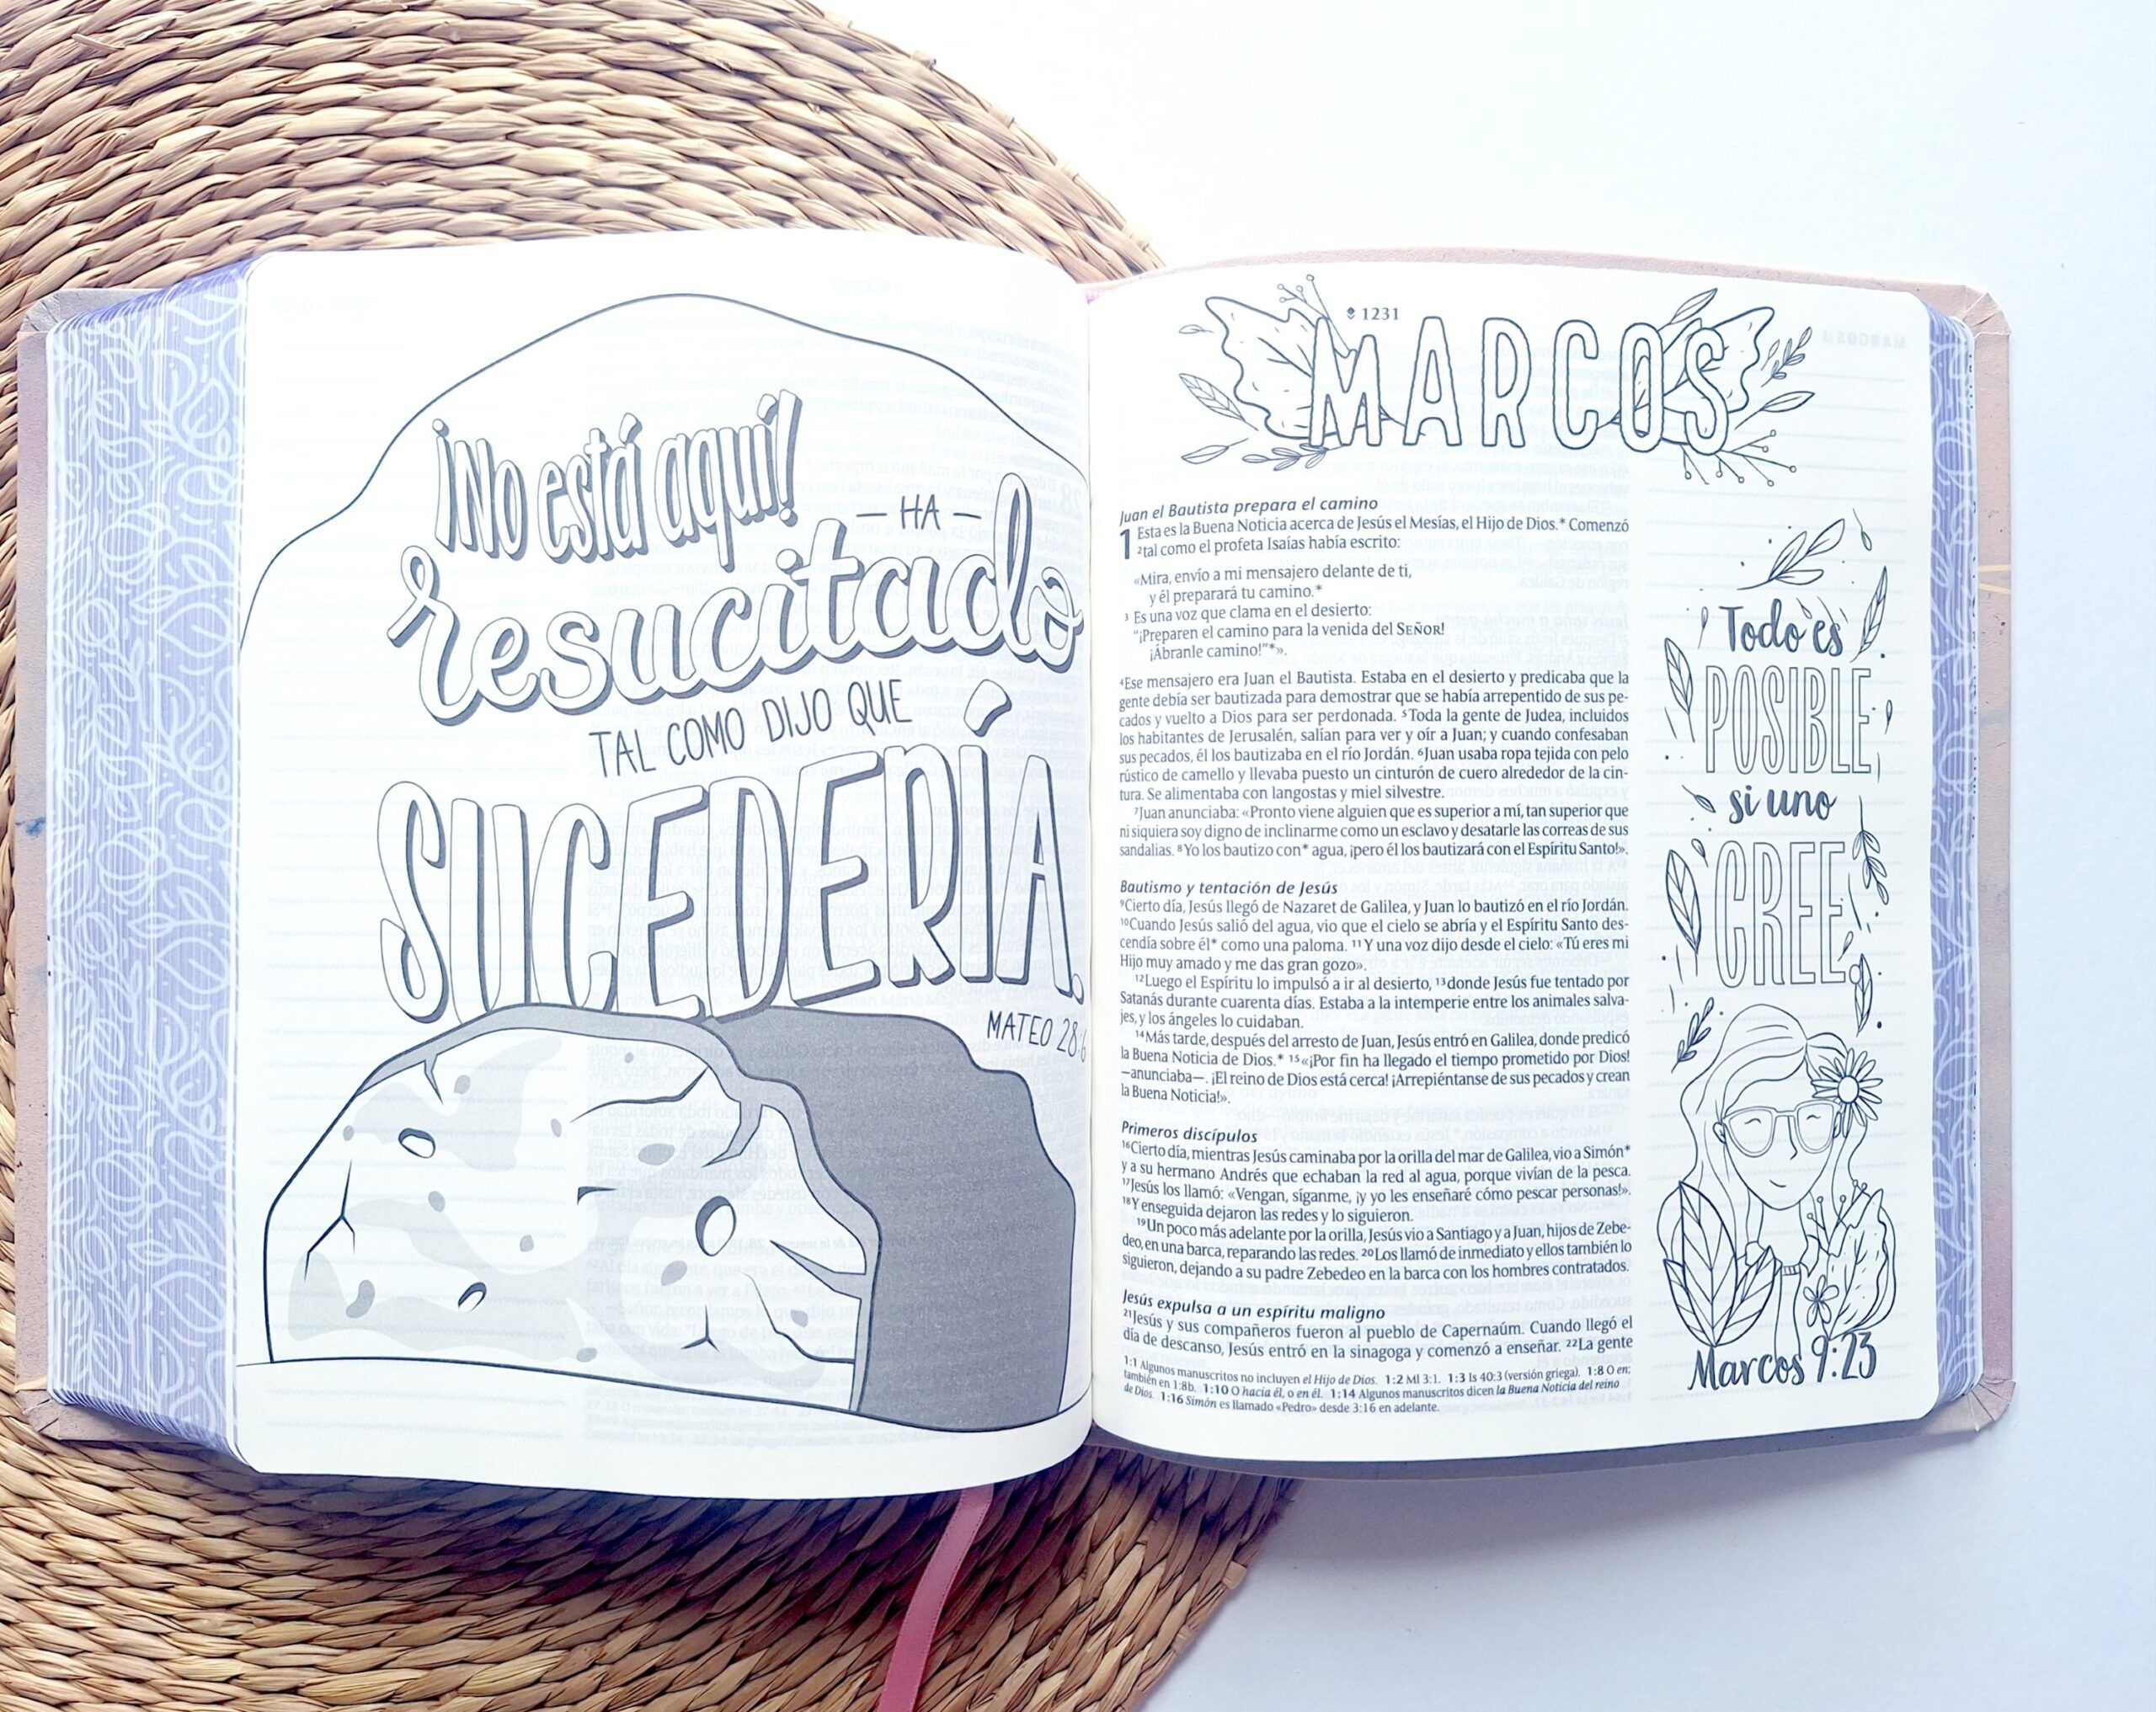 ¡No está aquí!
— HA —
resucitado
TAL COMO DIJO QUE
SUCEDERÍA.
MATEO 28:6
1231
MARCOS
Juan el Bautista prepara el camino
1 Esta es la Buena Noticia acerca de Jesús el Mesías, el Hijo de Dios.* Comenzó
2 tal como el profeta Isaías había escrito:
«Mira, envío a mi mensajero delante de ti,
y él preparará tu camino.*
3 Es una voz que clama en el desierto:
"¡Preparen el camino para la venida del SEÑOR!
¡Ábranle camino!"*».
4 Ese mensajero era Juan el Bautista. Estaba en el desierto y predicaba que la
gente debía ser bautizada para demostrar que se había arrepentido de sus pe-
cados y vuelto a Dios para ser perdonada. 5 Toda la gente de Judea, incluidos
los habitantes de Jerusalén, salían para ver y oír a Juan; y cuando confesaban
sus pecados, él los bautizaba en el río Jordán. 6 Juan usaba ropa tejida con pelo
rústico de camello y llevaba puesto un cinturón de cuero alrededor de la cin-
tura. Se alimentaba con langostas y miel silvestre.
7 Juan anunciaba: «Pronto viene alguien que es superior a mí, tan superior que
ni siquiera soy digno de inclinarme como un esclavo y desatarle las correas de sus
sandalias. 8 Yo los bautizo con* agua, ¡pero él los bautizará con el Espíritu Santo!».
Bautismo y tentación de Jesús
9 Cierto día, Jesús llegó de Nazaret de Galilea, y Juan lo bautizó en el río Jordán.
10 Cuando Jesús salió del agua, vio que el cielo se abría y el Espíritu Santo des-
cendía sobre él* como una paloma. 11 Y una voz dijo desde el cielo: «Tú eres mi
Hijo muy amado y me das gran gozo».
12 Luego el Espíritu lo impulsó a ir al desierto, 13 donde Jesús fue tentado por
Satanás durante cuarenta días. Estaba a la intemperie entre los animales salva-
jes, y los ángeles lo cuidaban.
14 Más tarde, después del arresto de Juan, Jesús entró en Galilea, donde predicó
la Buena Noticia de Dios.* 15 «¡Por fin ha llegado el tiempo prometido por Dios!
—anunciaba—. ¡El reino de Dios está cerca! ¡Arrepiéntanse de sus pecados y crean
la Buena Noticia!».
Primeros discípulos
16 Cierto día, mientras Jesús caminaba por la orilla del mar de Galilea, vio a Simón*
y a su hermano Andrés que echaban la red al agua, porque vivían de la pesca.
17 Jesús los llamó: «Vengan, síganme, ¡y yo les enseñaré cómo pescar personas!».
18 Y enseguida dejaron las redes y lo siguieron.
19 Un poco más adelante por la orilla, Jesús vio a Santiago y a Juan, hijos de Zebe-
deo, en una barca, reparando las redes. 20 Los llamó de inmediato y ellos también lo
siguieron, dejando a su padre Zebedeo en la barca con los hombres contratados.
Jesús expulsa a un espíritu maligno
21 Jesús y sus compañeros fueron al pueblo de Capernaúm. Cuando llegó el
día de descanso, Jesús entró en la sinagoga y comenzó a enseñar. 22 La gente
1:1 Algunos manuscritos no incluyen el Hijo de Dios. 1:2 Ml 3:1. 1:3 Is 40:3 (versión griega). 1:8 O en;
también en 1:8b. 1:10 O hacia él, o en él. 1:14 Algunos manuscritos dicen la Buena Noticia del reino
de Dios. 1:16 Simón es llamado «Pedro» desde 3:16 en adelante.
Todo es
POSIBLE
si uno
CREE.
Marcos 9:23